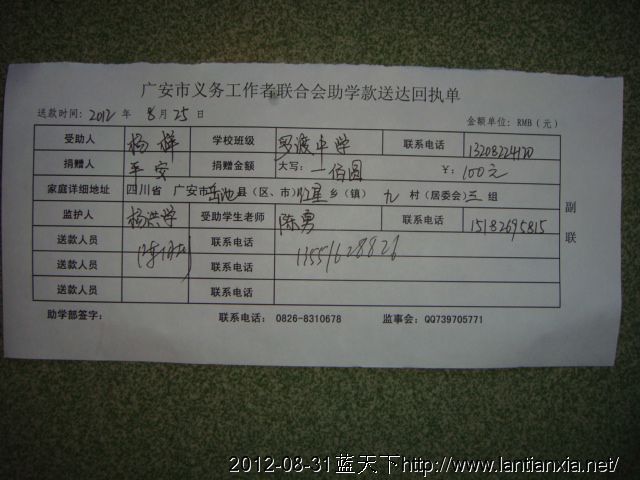 广安市义务工作者联合会助学款送达回执单
送款时间: 2012 年 8 月 25 日 金额单位: RMB (元)
受助人 杨样 学校班级 罗渡中学 联系电话 13208224120
捐赠人 平安 捐赠金额 大写: 一佰圆 ¥: 100元
家庭详细地址 四川省 广安市 岳池 县(区、市) 红星 乡(镇) 九 村(居委会) 三 组
监护人 杨洪学 受助学生老师 陈勇 联系电话 15182695815
送款人员 联系电话 13551628826
送款人员 联系电话
送款人员 联系电话
副联
助学部签字: 联系电话: 0826-8310678 监事会: QQ739705771
2012-08-31蓝天下http://www.lantianxia.net/